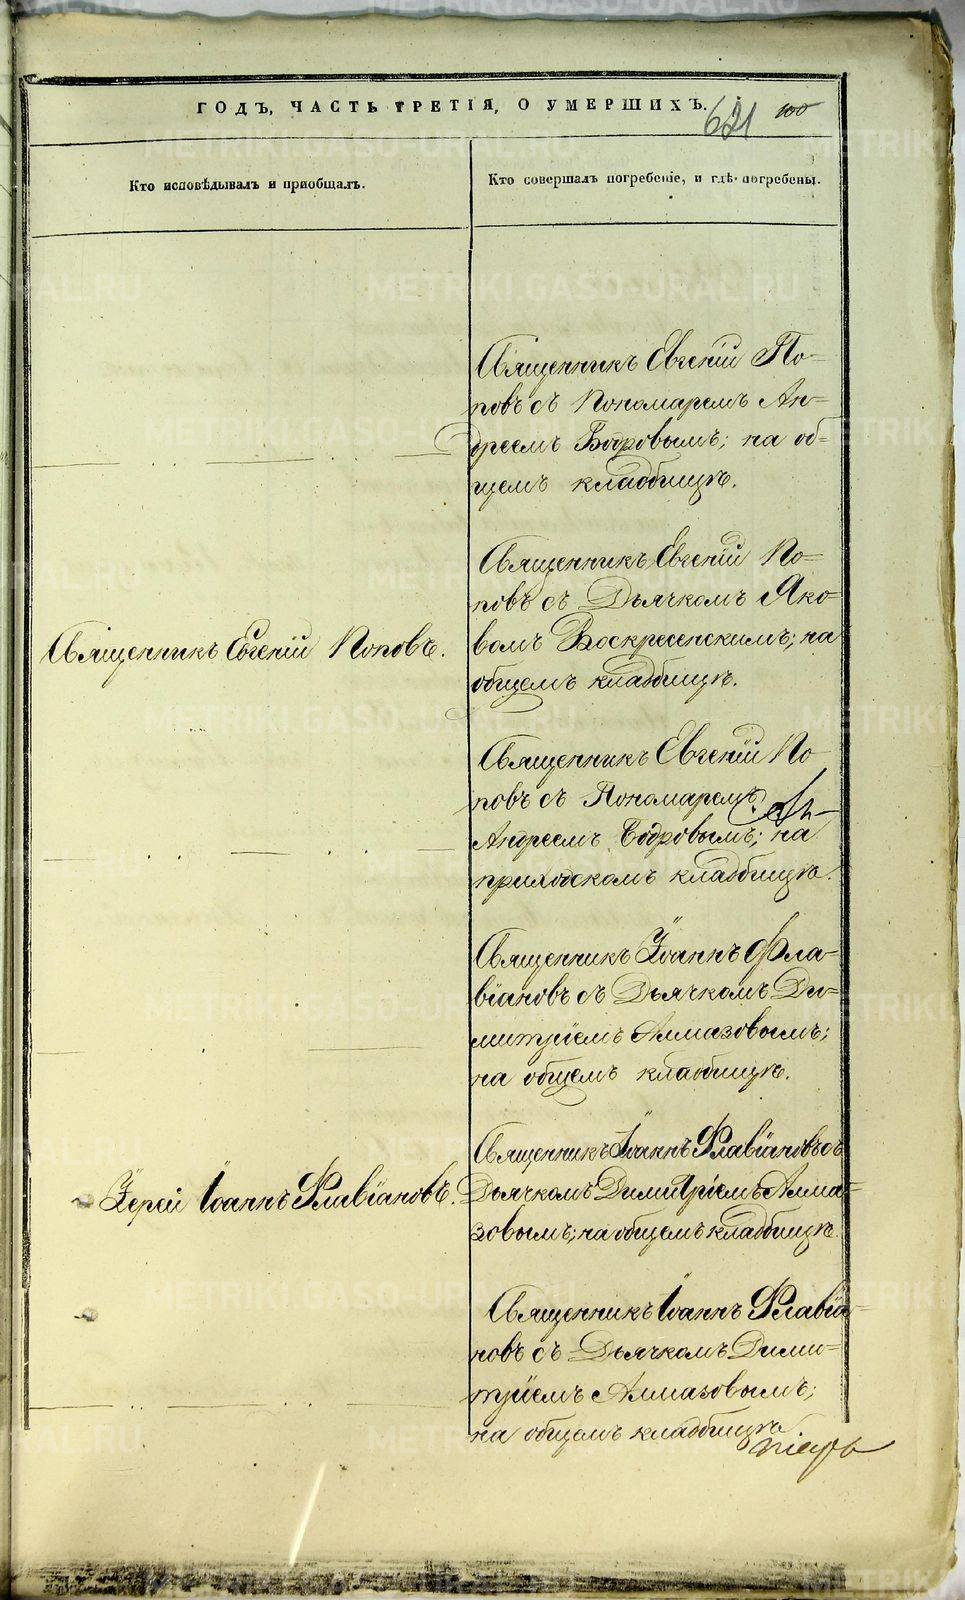 ГОДЪ, ЧАСТЬ ТРЕТІЯ, О УМЕРШИХЪ.
621 100
Кто исповѣдывалъ и приобщалъ.
Кто совершалъ погребеніе, и гдѣ погребены.
Священникъ Евгеній По-
повъ съ Пономаремъ Ан-
дреемъ Бодровымъ; на об-
щемъ кладбищѣ.
Священникъ Евгеній Поповъ.
Священникъ Евгеній По-
повъ съ Дьячкомъ Яко-
вомъ Воскресенскимъ; на
общемъ кладбищѣ.
Священникъ Евгеній По-
повъ съ Пономаремъ
Андреемъ Бодровымъ; на
приходскомъ кладбищѣ.
Священникъ Іоаннъ Фла-
віановъ съ Дьячкомъ Ди-
митріемъ Алмазовымъ;
на общемъ кладбищѣ.
Іерей Іоаннъ Флавіановъ.
Священникъ Іоаннъ Флавіановъ съ
Дьячкомъ Димитріемъ Алма-
зовымъ; на общемъ кладбищѣ.
Священникъ Іоаннъ Флавіа-
новъ съ Дьячкомъ Дими-
тріемъ Алмазовымъ;
на общемъ кладбищѣ
METRIKI.GASO-URAL.RU